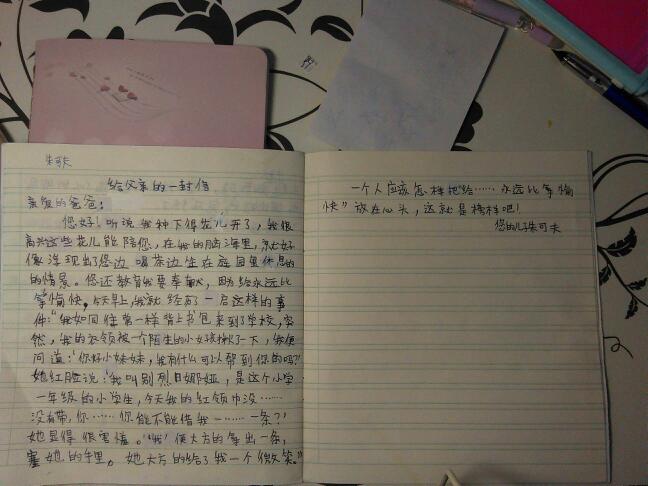 朱可夫
给父亲的一封信
亲爱的爸爸：
您好！听说我种下得花儿开了，我很
高兴这些花儿能陪您，在我的脑海里，就好
像浮现出了您边喝茶边坐在庭园里休息的
的情景。您还教育我要奉献，因为给永远比
拿愉快，今天早上，我就经历了一启这样的事
件：“我如同往常一样背上书包来到了学校，突
然，我的衣领被一个陌生的小女孩揪了下，我便
问道：‘你好小妹妹，我有什么可以帮到你的吗？’
她红脸说：‘我叫别烈日娜娅，是这个小学
一年级的小学生，今天我的红领巾没……
没有带，你……你能不能借我一……一条？’
她显得很害羞。‘我’便大方的拿出一条，
塞她的手里。她大方的给了我一个微笑。”
一个人应该怎样把“给……永远比拿愉
快”放在心头，这就是榜样吧！
您的儿：朱可夫